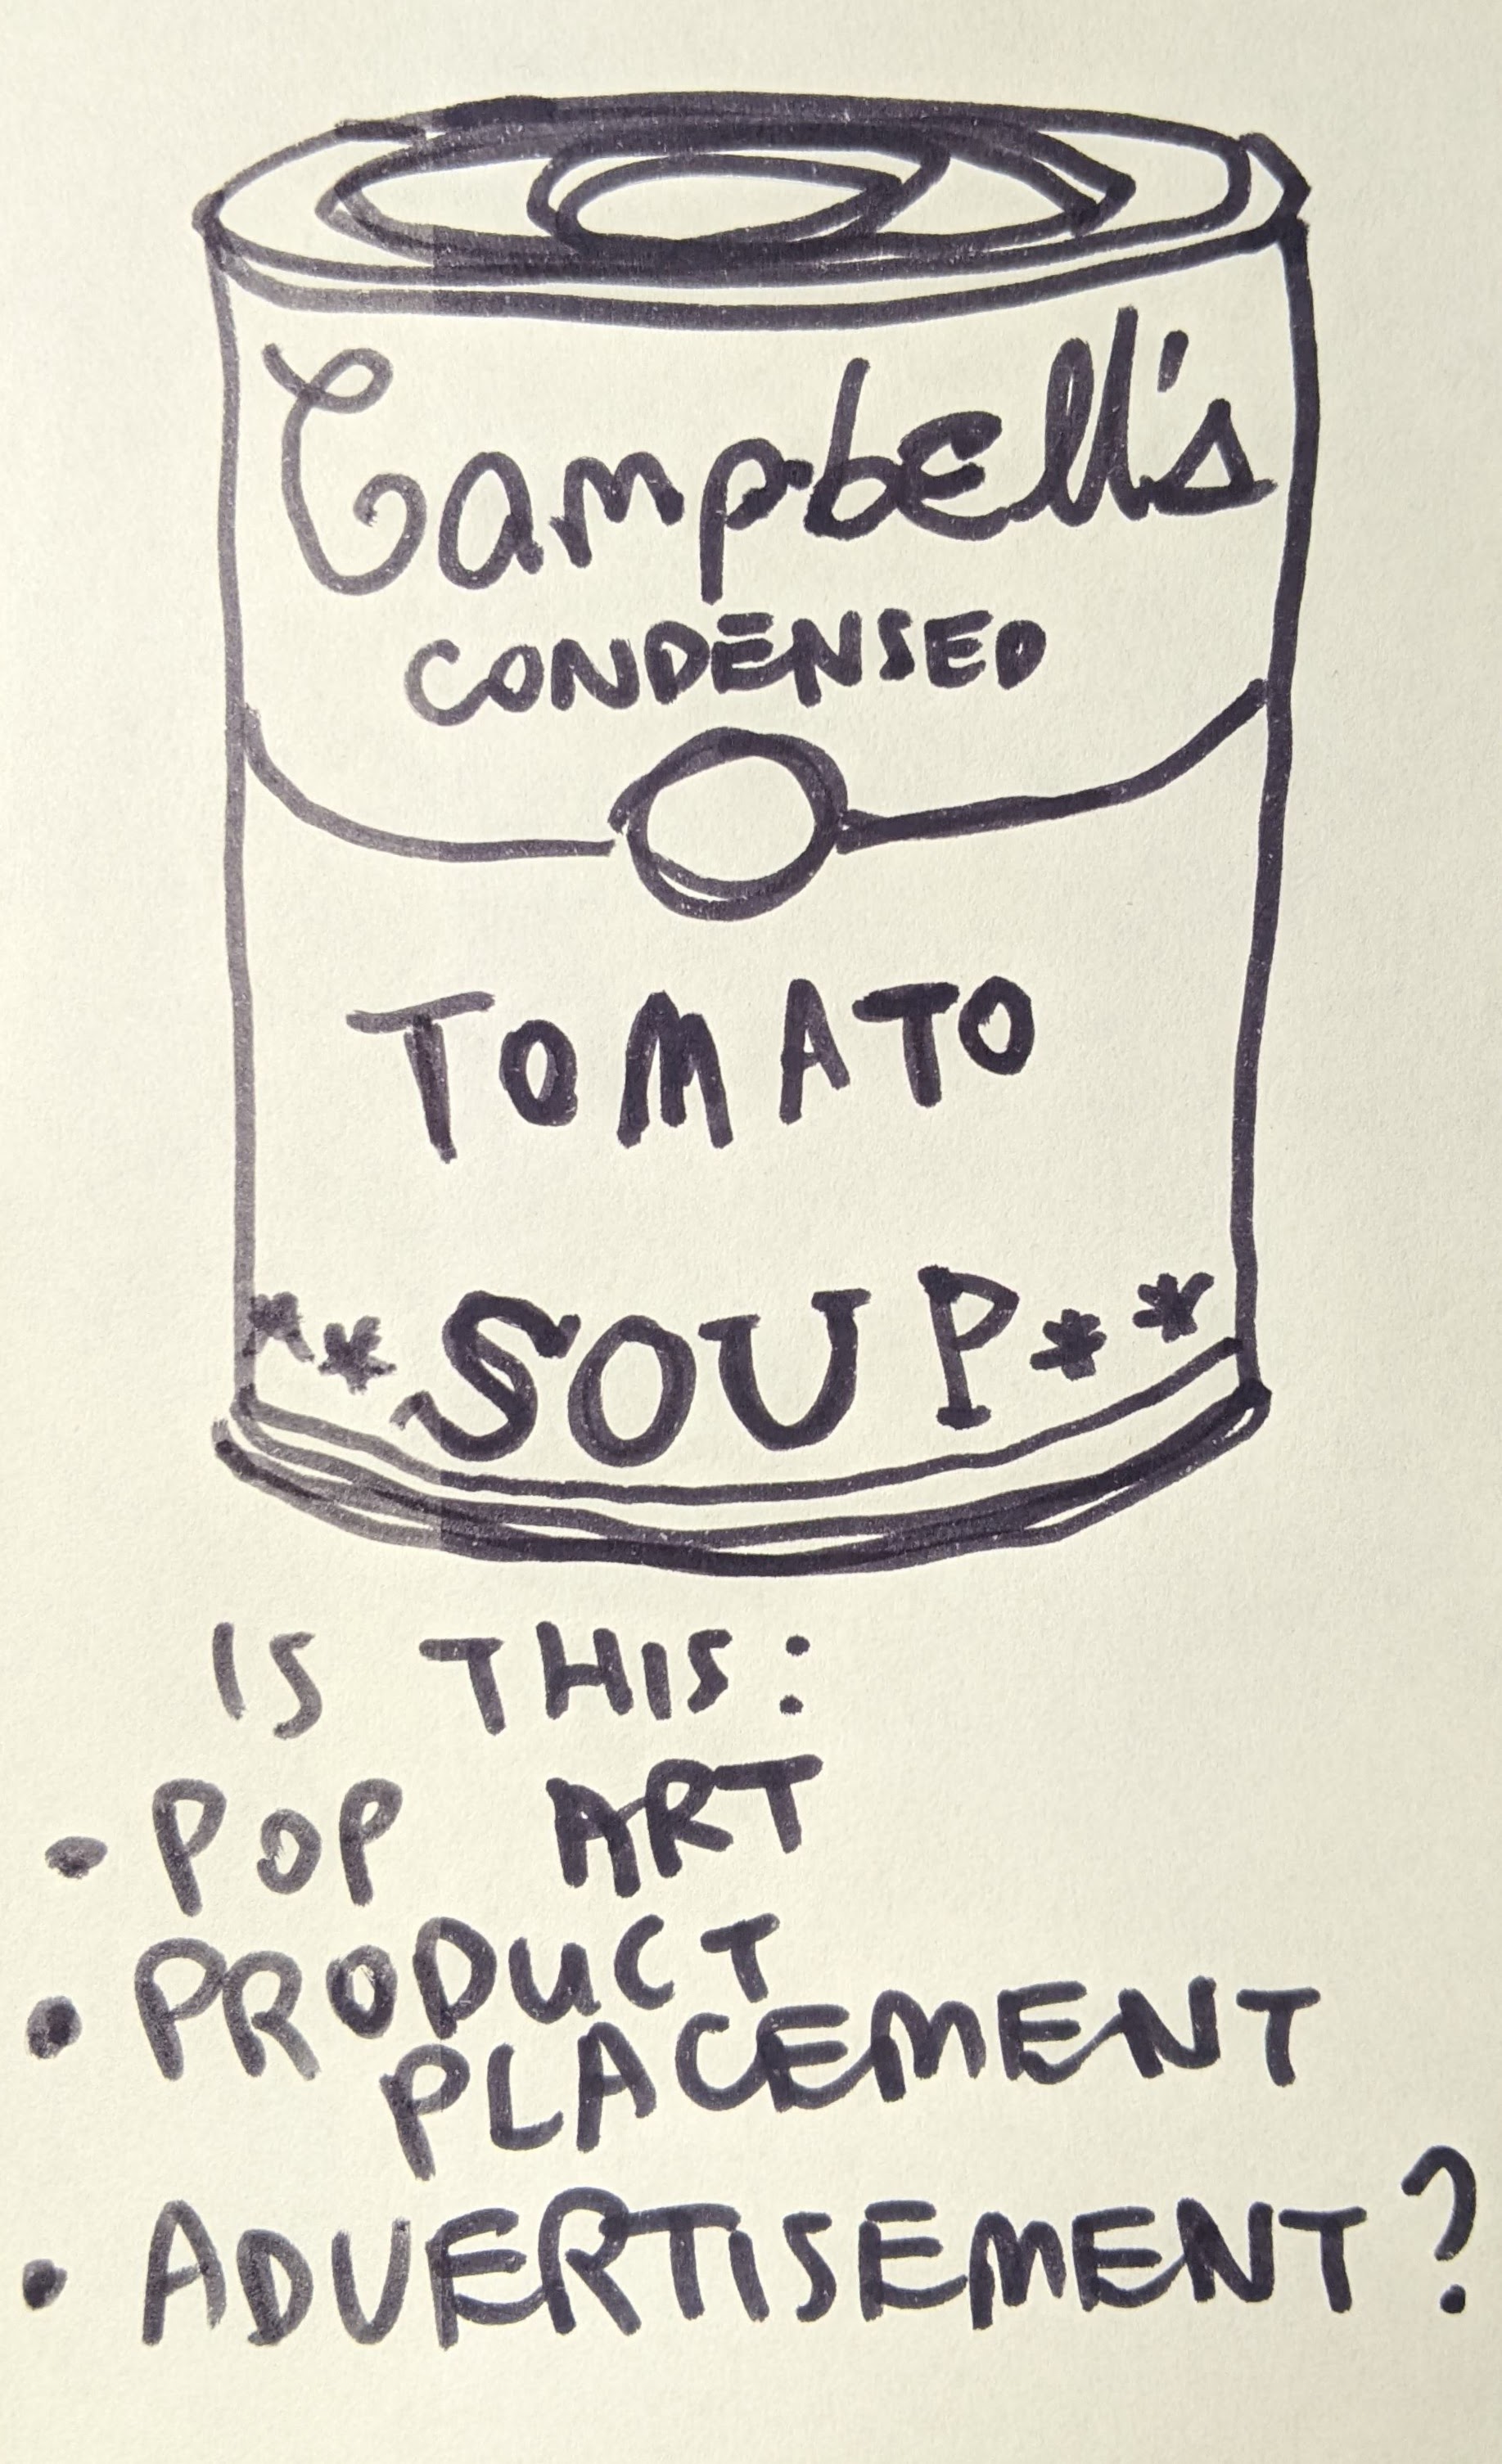 Campbell's
CONDENSED
TOMATO
**SOUP**
IS THIS:
• POP ART
• PRODUCT
PLACEMENT
• ADVERTISEMENT?